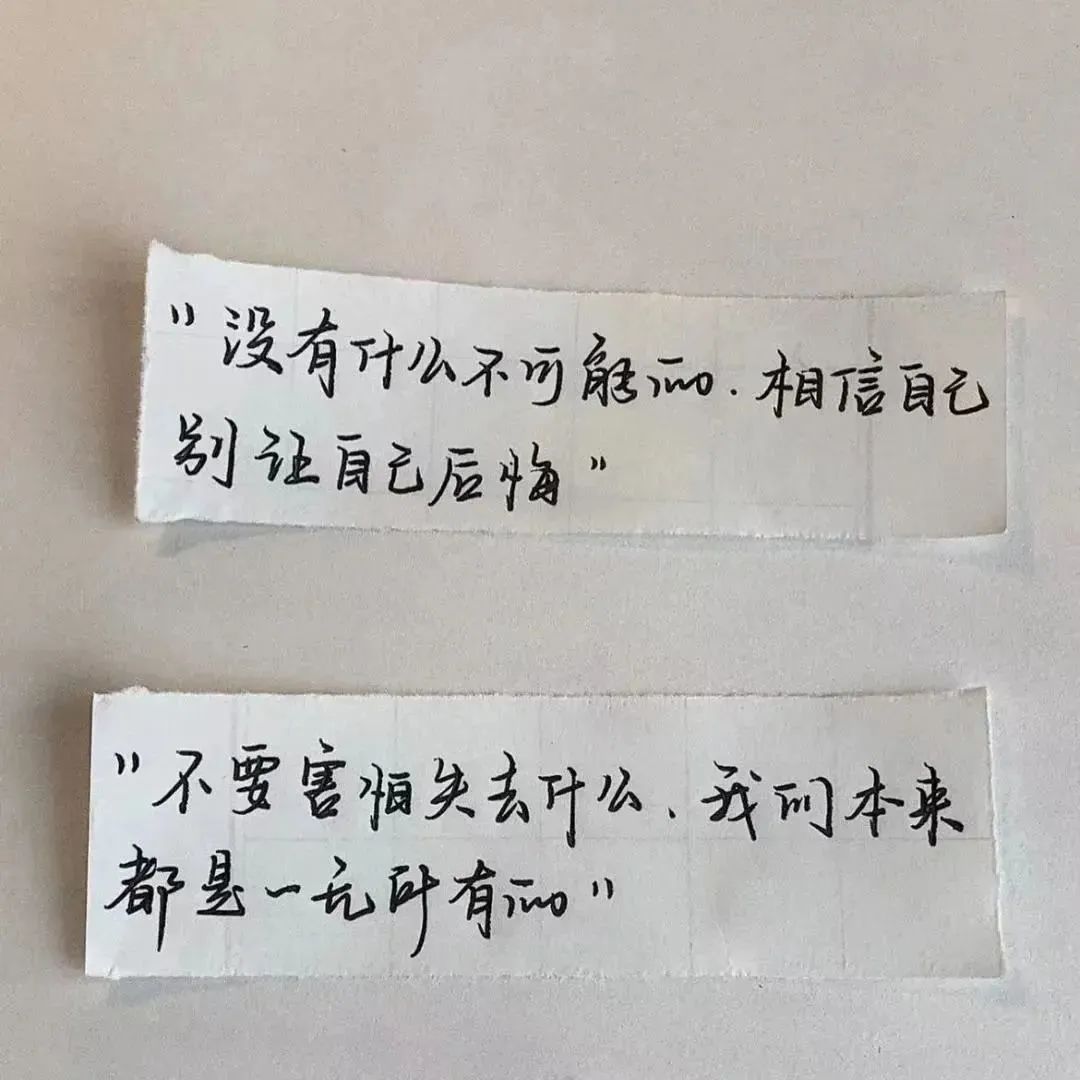 "没有什么不可能的.相信自己
别让自己后悔"
"不要害怕失去什么、我们本来
都是一无所有的"